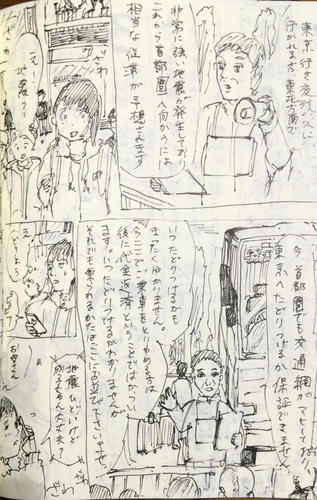 東京行き夜行バスに
行かれる方、東北方面で
非常に強い地震が発生しており
これから首都圏へ向かうには
相当な渋滞が予想されます
ざわ
ざわ
えー!
地震?
今首都圏でも交通網がマヒしており、
東京へたどりつけるか保証できません。
いつたどりつけるかも
まったく分かりません。
今ここでご乗車をとりやめる方は
後に代金返済ということでけっこう
ます。いつたどりつけるかわかりませんが
それでも乗られるかたはここにお並び下さいませ。
どうしよう
お母さん
地震ひどいけど
ちゃん大丈夫?
ざわ